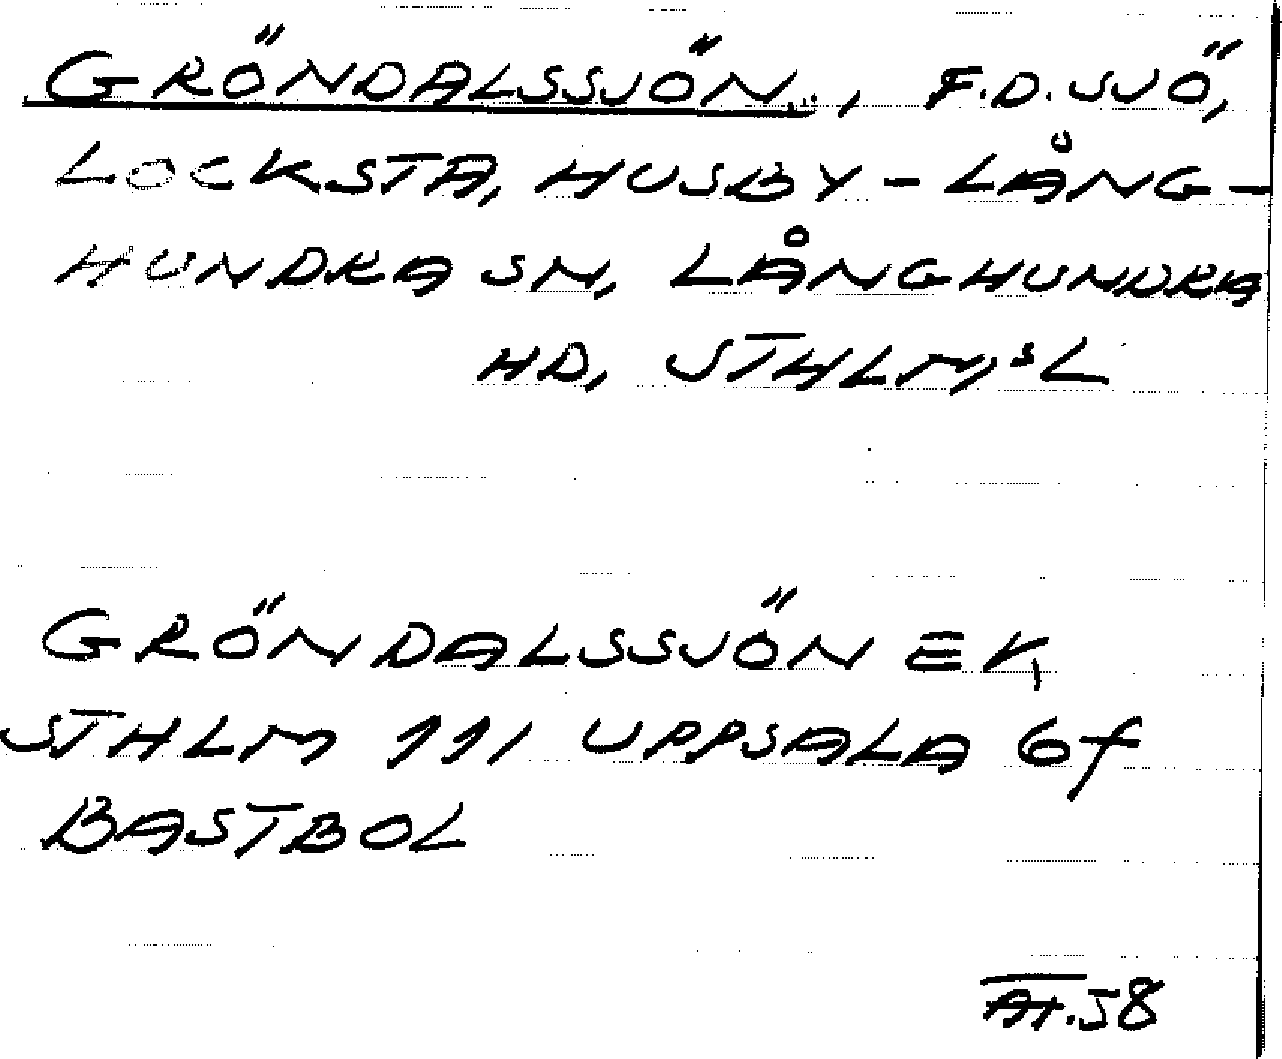 GRÖNDALSSJÖN, F.D. SJÖ,
LOCKSTA, HUSBY-LÅNG-
HUNDRA SN, LÅNGHUNDRA
HD, STHLM,S L
GRÖNDALSSJÖN EK,
STHLM 111 UPPSALA 6f
BASTBOL
AT.58